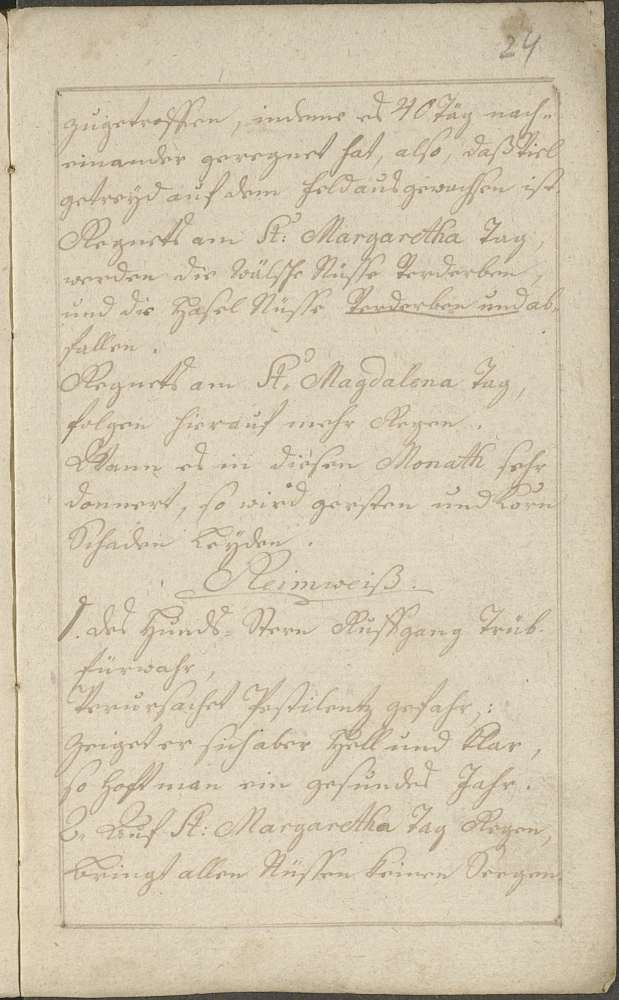 24
zugetroffen, indeme es 40 Täg nach-
einander geregnet hat, also, daß viel
getreyd auf dem feld ausgewachsen ist.
Regnets am St: Margaretha Tag,
werden die Wälsche Nüsse Verderben,
und die Hasel Nüsse Verderben und ab-
fallen.
Regnets am St. Magdalena Tag,
folgen hierauf mehr Regen.
Wann es in diesen Monath sehr
donnert, so wird gersten und Korn
Schaden Leyden.
Reimweiß.
1. des Hunds-Stern Auffgang Trüb
fürwahr,
Verursachet Pestilentz gefahr,:
Zeiget er sich aber Hell und klar,
so hoft man ein gesundes Jahr.
2. Auf St: Margaretha Tag Regen,
bringt allen Nüssen keinen Seegen